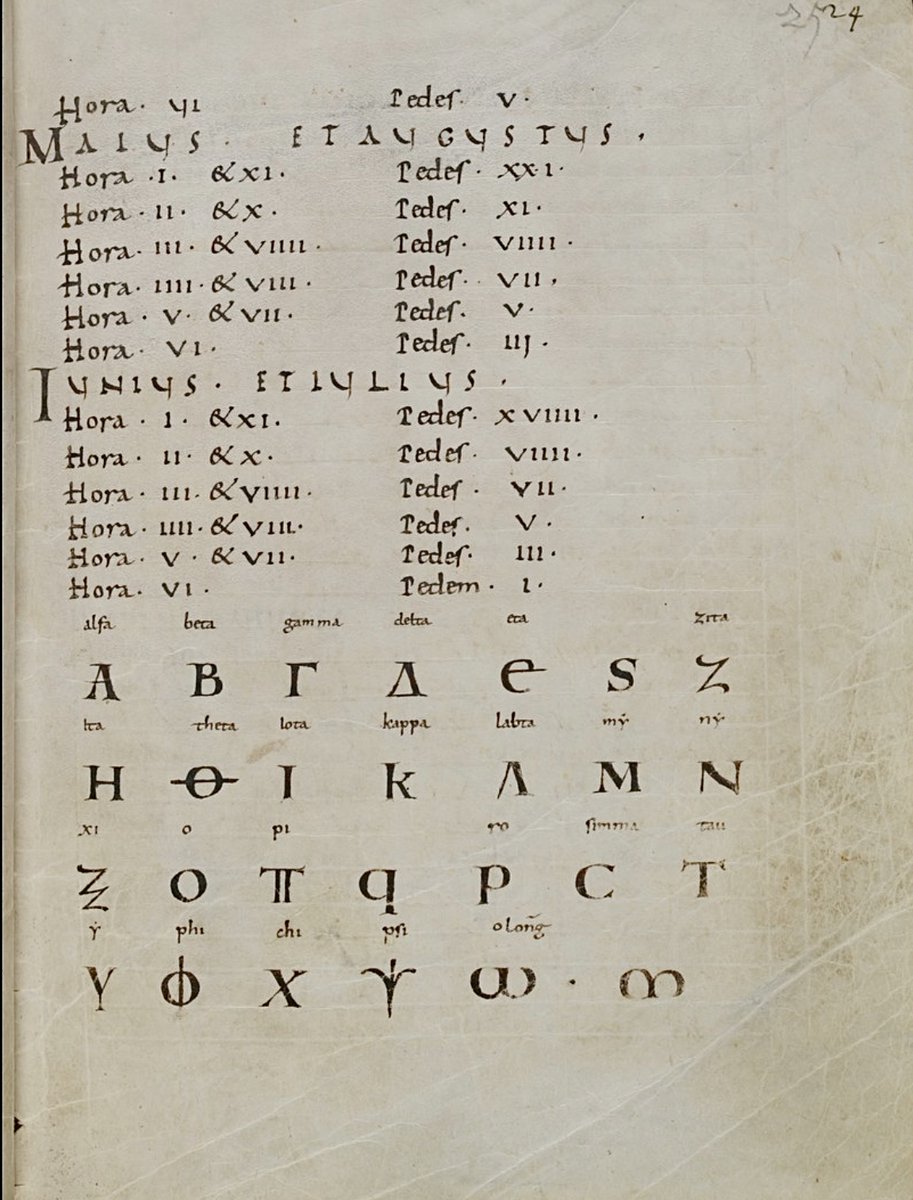 24
Hora · VI Pedes · V ·
MAIUS · ET AUGUSTUS ·
Hora · I · & XI · Pedes · XXI ·
Hora · II · & X · Pedes · XI ·
Hora · III · & VIIII · Pedes · VIIII ·
Hora · IIII · & VIII · Pedes · VII ·
Hora · V · & VII · Pedes · V ·
Hora · VI · Pedes · IIJ ·
IUNIUS · ET IULIUS ·
Hora · I · & XI · Pedes · XVIIII ·
Hora · II · & X · Pedes · VIIII ·
Hora · III · & VIIII · Pedes · VII ·
Hora · IIII · & VIII · Pedes · V ·
Hora · V · & VII · Pedes · III ·
Hora · VI · Pedem · I ·
alfa beta gamma delta eta zita
Α Β Γ Δ Є S Z
ita theta iota kappa labta mẏ nẏ
H Θ I K Λ M N
xi o pi ro simma tau
Ξ O Π q P C T
ẏ phi chi psi o long̅
Y Φ X Ψ ω · m